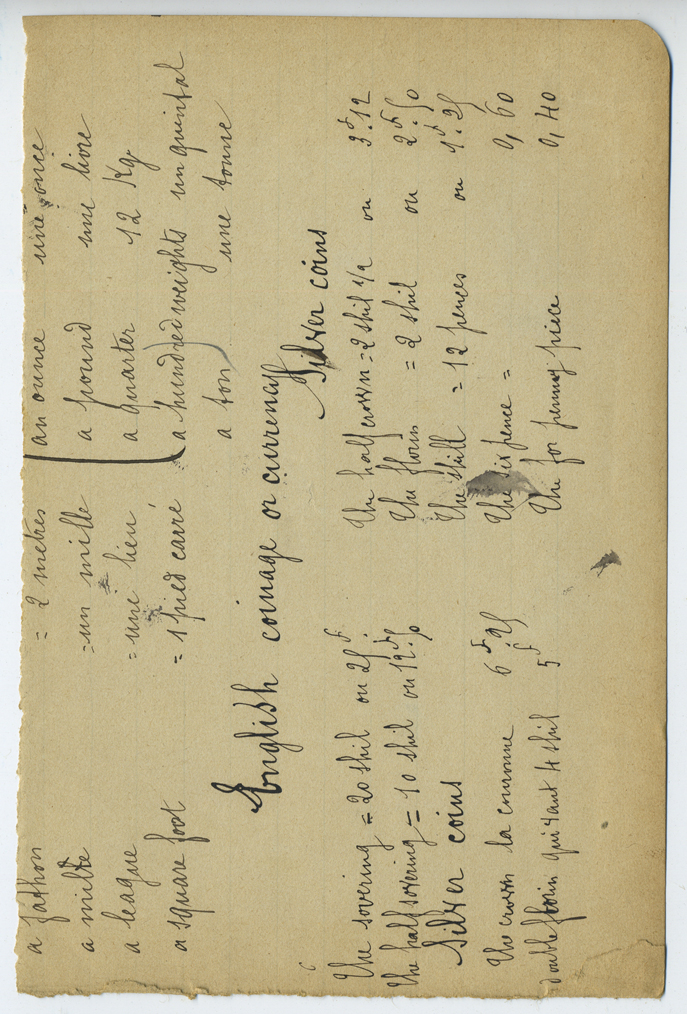 a fathon = 2 metres
a mille = un mille
a league = une lieu
a square foot = 1 pied carré
an ounce une once
a pound une livre
a quarter 12 Kg
a hundred weights un quintal
a ton une tonne
English coinage or currency
The sovering = 20 shil ou 25f.
the half sovering = 10 shil ou 12f.50
Silver coins
The crown la couronne 6f.25
double florin qui vaut 4 shil 5f
Silver coins
The half crown = 2 shil 1/2 ou 3f.12
The florin = 2 shil ou 2f.50
The shill = 12 pences ou 1f.25
The six pence = 0,60
The for penny piece 0,40